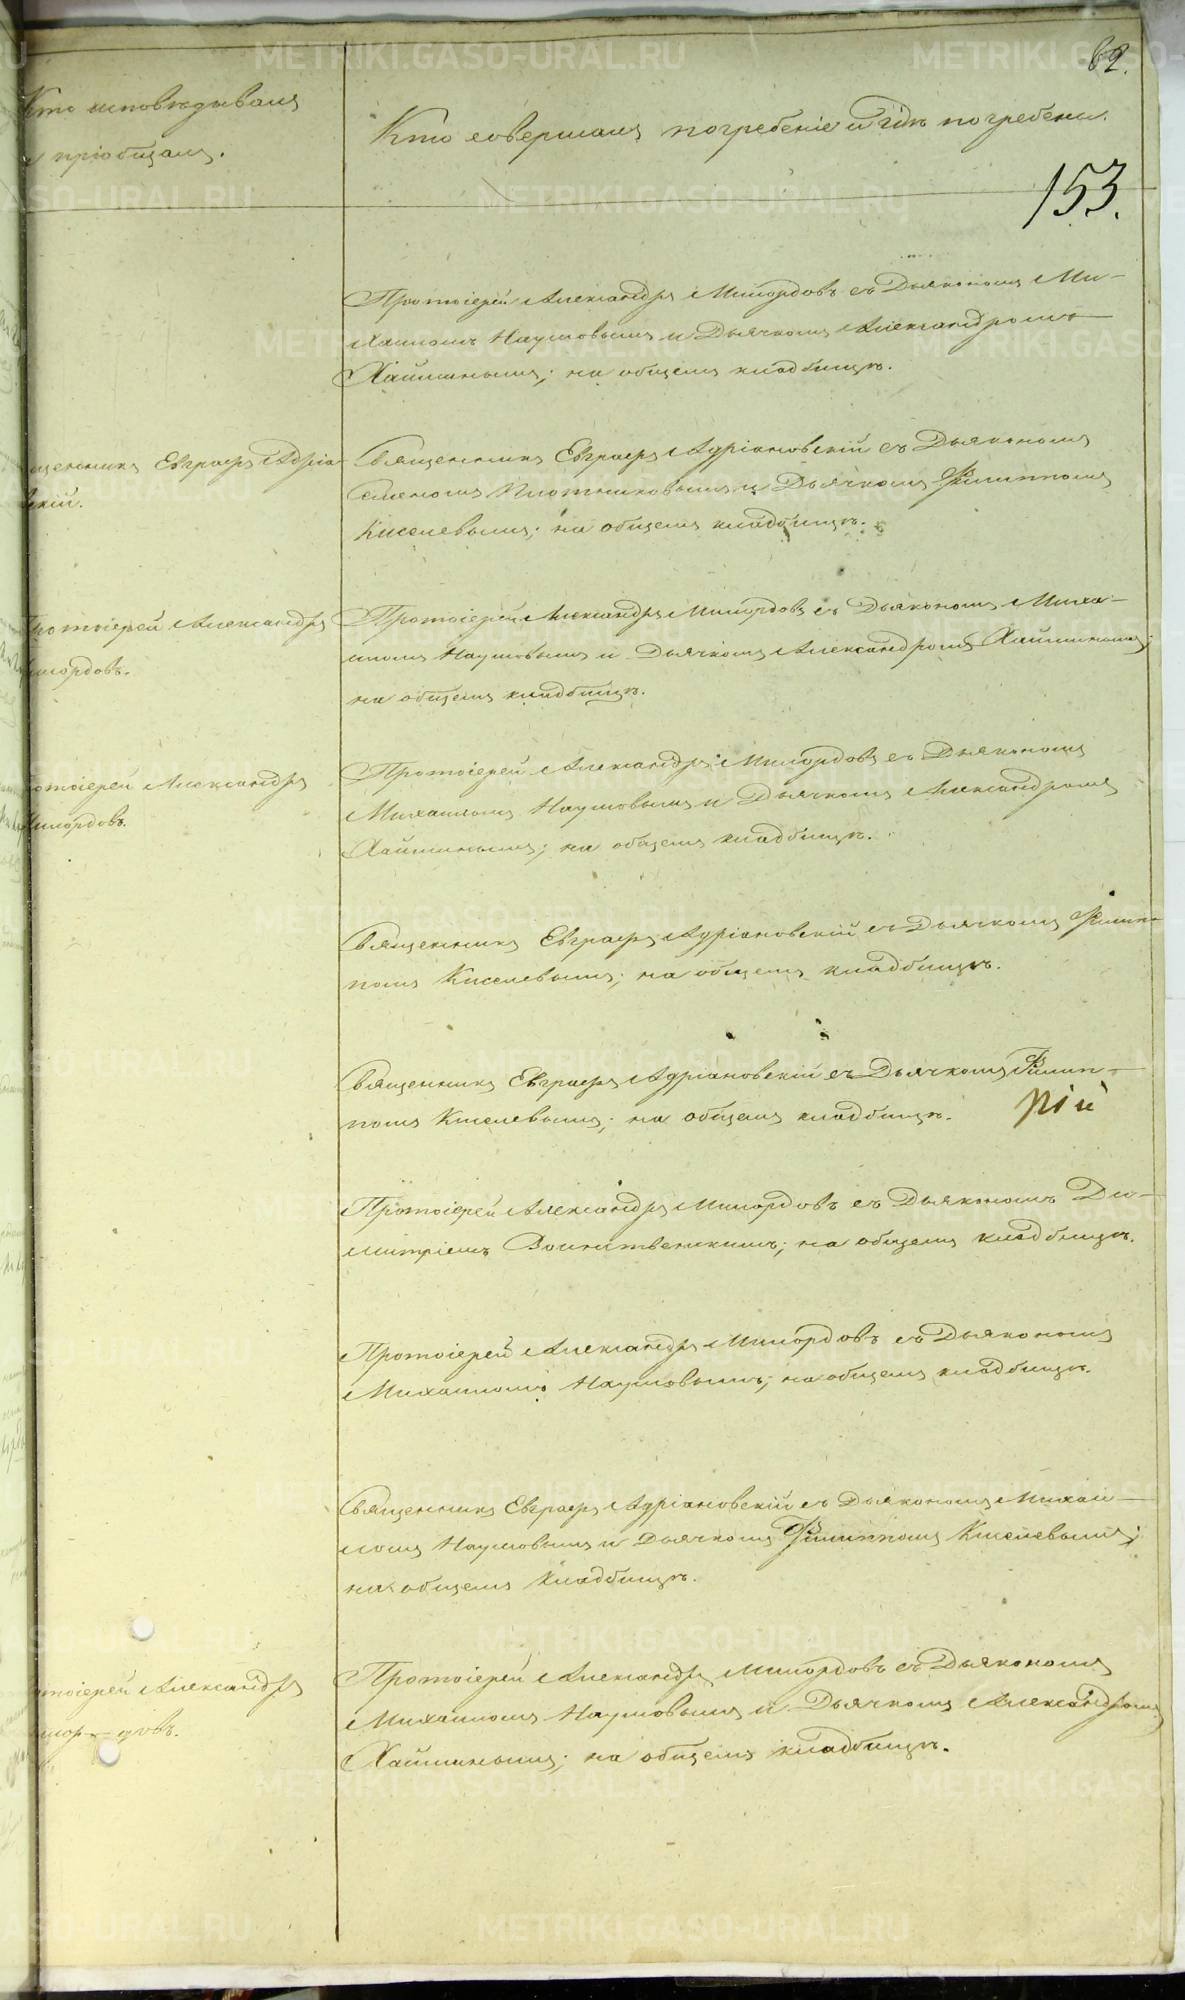 62.
Кто исповѣдывалъ
и пріобщалъ.
Кто совершалъ погребеніе и гдѣ погребены.
153.
Протоіерей Александръ Милордовъ съ Діакономъ Ми-
хаиломъ Наумовымъ и Дьячкомъ Александромъ
Хайминымъ; на общемъ кладбищѣ.
щенникъ Евграфъ Адріа-
скій.
Священникъ Евграфъ Адріановскій съ Діакономъ
Семеномъ Плотниковымъ и Дьячкомъ Филиппомъ
Киселевымъ; на общемъ кладбищѣ.
Протоіерей Александръ
Милордовъ.
Протоіерей Александръ Милордовъ съ Діакономъ Миха-
иломъ Наумовымъ и Дьячкомъ Александромъ Хайминымъ;
на общемъ кладбищѣ.
отоіерей Александръ
Милордовъ.
Протоіерей Александръ Милордовъ съ Діакономъ
Михаиломъ Наумовымъ и Дьячкомъ Александромъ
Хайминымъ; на общемъ кладбищѣ.
Священникъ Евграфъ Адріановскій съ Дьячкомъ Филип-
помъ Киселевымъ; на общемъ кладбищѣ.
Священникъ Евграфъ Адріановскій съ Дьячкомъ Филип-
помъ Киселевымъ; на общемъ кладбищѣ.
рій
Протоіерей Александръ Милордовъ съ Діакономъ Ди-
митріемъ; на общемъ кладбищѣ.
Протоіерей Александръ Милордовъ съ Діакономъ
Михаиломъ Наумовымъ; на общемъ кладбищѣ.
Священникъ Евграфъ Адріановскій съ Діакономъ Михаи-
ломъ Наумовымъ и Дьячкомъ Филиппомъ Киселевымъ;
на общемъ кладбищѣ.
отоіерей Александръ
лор-довъ.
Протоіерей Александръ Милордовъ съ Діакономъ
Михаиломъ Наумовымъ и Дьячкомъ Александромъ
Хайминымъ; на общемъ кладбищѣ.